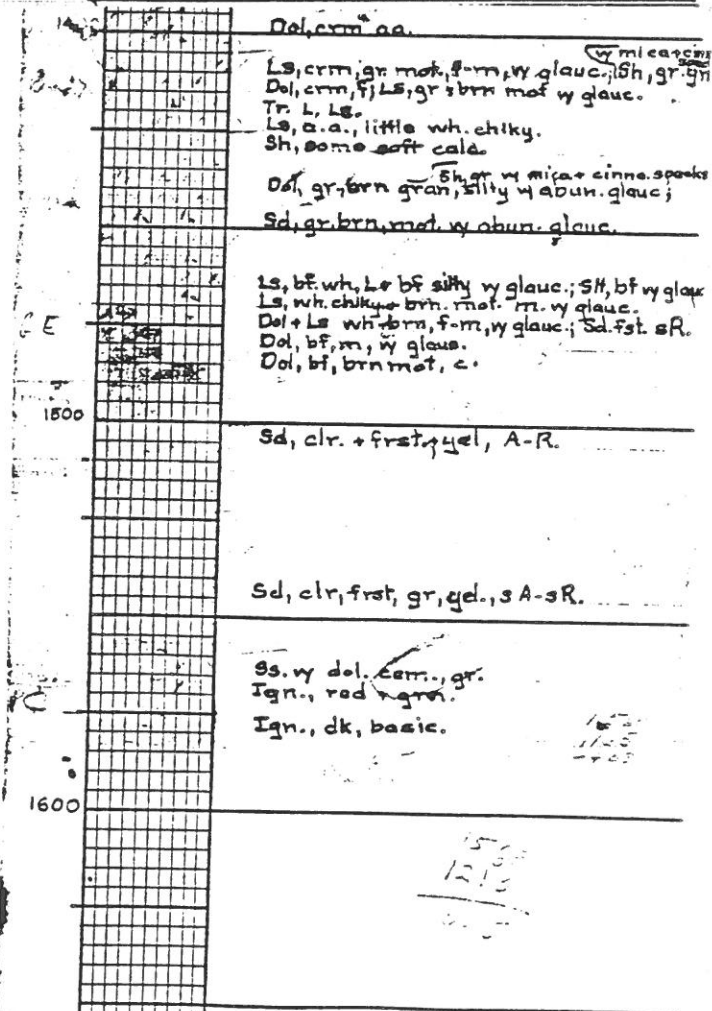 Dol, crm aa.
w mica + cinn
Ls, crm, gr. mot, f-m, w glauc.; Sh, gr-gn
Dol, crm, f; LS, gr & brn mot w glauc.
Tr. L, Ls.
Ls, a.a., little wh. chlky.
Sh, some soft calc.
Sh, gr w mica + cinna. specks
Dol, gr, brn gran, silty w abun. glauc;
Sd, gr. brn, mot. w abun. glauc.
Ls, bf. wh, L + bf silty w glauc.; SH, bf w glauc
Ls, wh. chlky + brn. mot. m. w glauc.
E
Dol + Ls wh-brn, f-m, w glauc.; Sd. fst. sR.
Dol, bf, m, w glauc.
Dol, bf, brn mot, c.
1500
Sd, clr. + frst, yel, A-R.
Sd, clr, frst, gr, yel., sA-sR.
Ss. w dol. cem., gr.
Ign., red + grn.
C
Ign., dk, basic.
1600